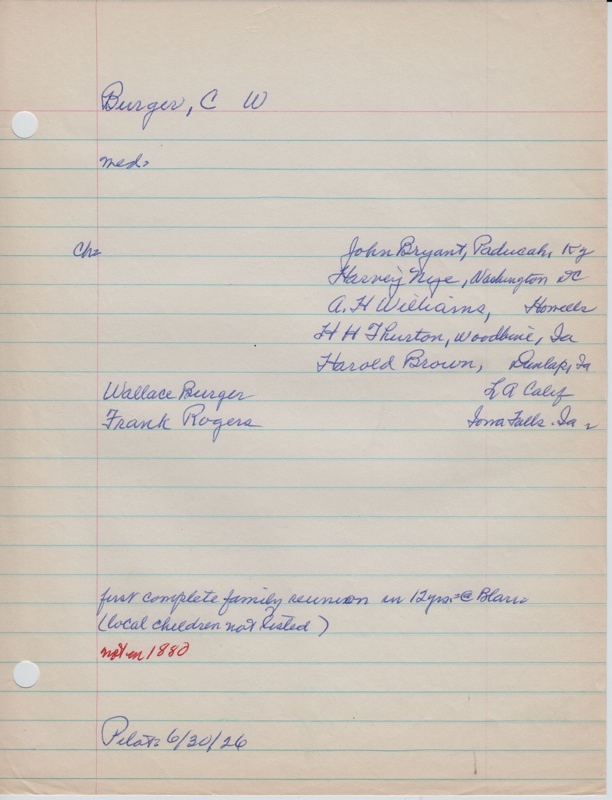 Burger, C W
med:
Ch: John Bryant, Paducah, Ky
Harvey Nye, Washington DC
A. H Williams, Howells
H H Thurston, Woodbine, Ia
Harold Brown, Dunlap, Ia
Wallace Burger LA Calif
Frank Rogers Iowa Falls. Ia.
first complete family reunion in 12yrs: @ Blair:
(local children not listed)
not in 1880
Pilot: 6/30/26